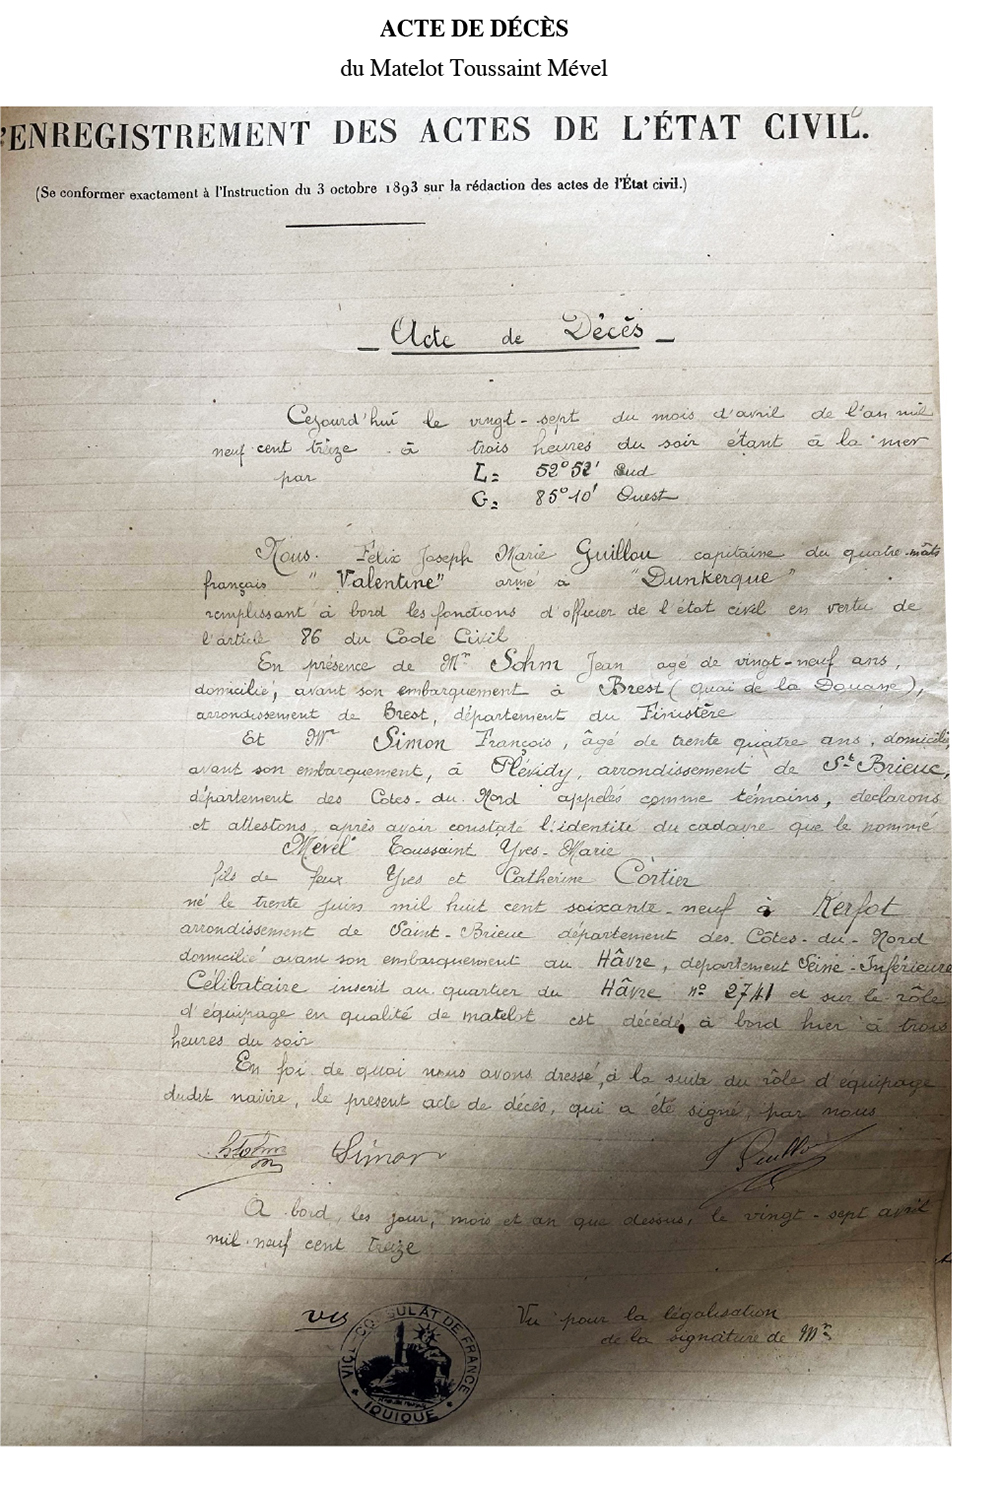 ACTE DE DÉCÈS
du Matelot Toussaint Mével
'ENREGISTREMENT DES ACTES DE L'ÉTAT CIVIL.
(Se conformer exactement à l'Instruction du 3 octobre 1893 sur la rédaction des actes de l'État civil.)
_ Acte de Décès _
Cejourd'hui le vingt-sept du mois d'avril de l'an mil
neuf cent treize à trois heures du soir étant à la mer
par L= 52°52' Sud
G= 85°10' Ouest
Nous. Félix Joseph Marie Guillou capitaine du quatre-mâts
français "Valentine" armé à "Dunkerque"
remplissant à bord les fonctions d'officier de l'état civil en vertu de
l'article 86 du Code Civil
En présence de Mr Sohm Jean agé de vingt-neuf ans,
domicilié, avant son embarquement à Brest (quai de la Douane),
arrondissement de Brest, département du Finistère
Et Mr Simon François, âgé de trente quatre ans, domicilié,
avant son embarquement, à Plévidy, arrondissement de St Brieuc,
département des Cotes-du-Nord appelés comme témoins, declarons
et attestons, après avoir constaté l'identité du cadavre que le nommé
Mével Toussaint Yves-Marie
fils de feux Yves et Catherine Cortier
né le trente juin mil huit cent soixante-neuf à Kerfot
arrondissement de Saint-Brieuc département des Côtes-du-Nord
domicilié avant son embarquement au Hâvre, département Seine-Inférieure
Célibataire inscrit au quartier du Hâvre n° 2741 et sur le rôle
d'équipage en qualité de matelot est décédé, à bord hier à trois
heures du soir
En foi de quoi nous avons dressé, à la suite du rôle d'équipage
dudit navire, le présent acte de décès, qui a été signé par nous
Simon Guillou
A bord, les jour, mois et an que dessus, le vingt-sept avril
mil neuf cent treize
Vu pour la légalisation
de la signature de Mr
VICE CONSULAT DE FRANCE
IQUIQUE